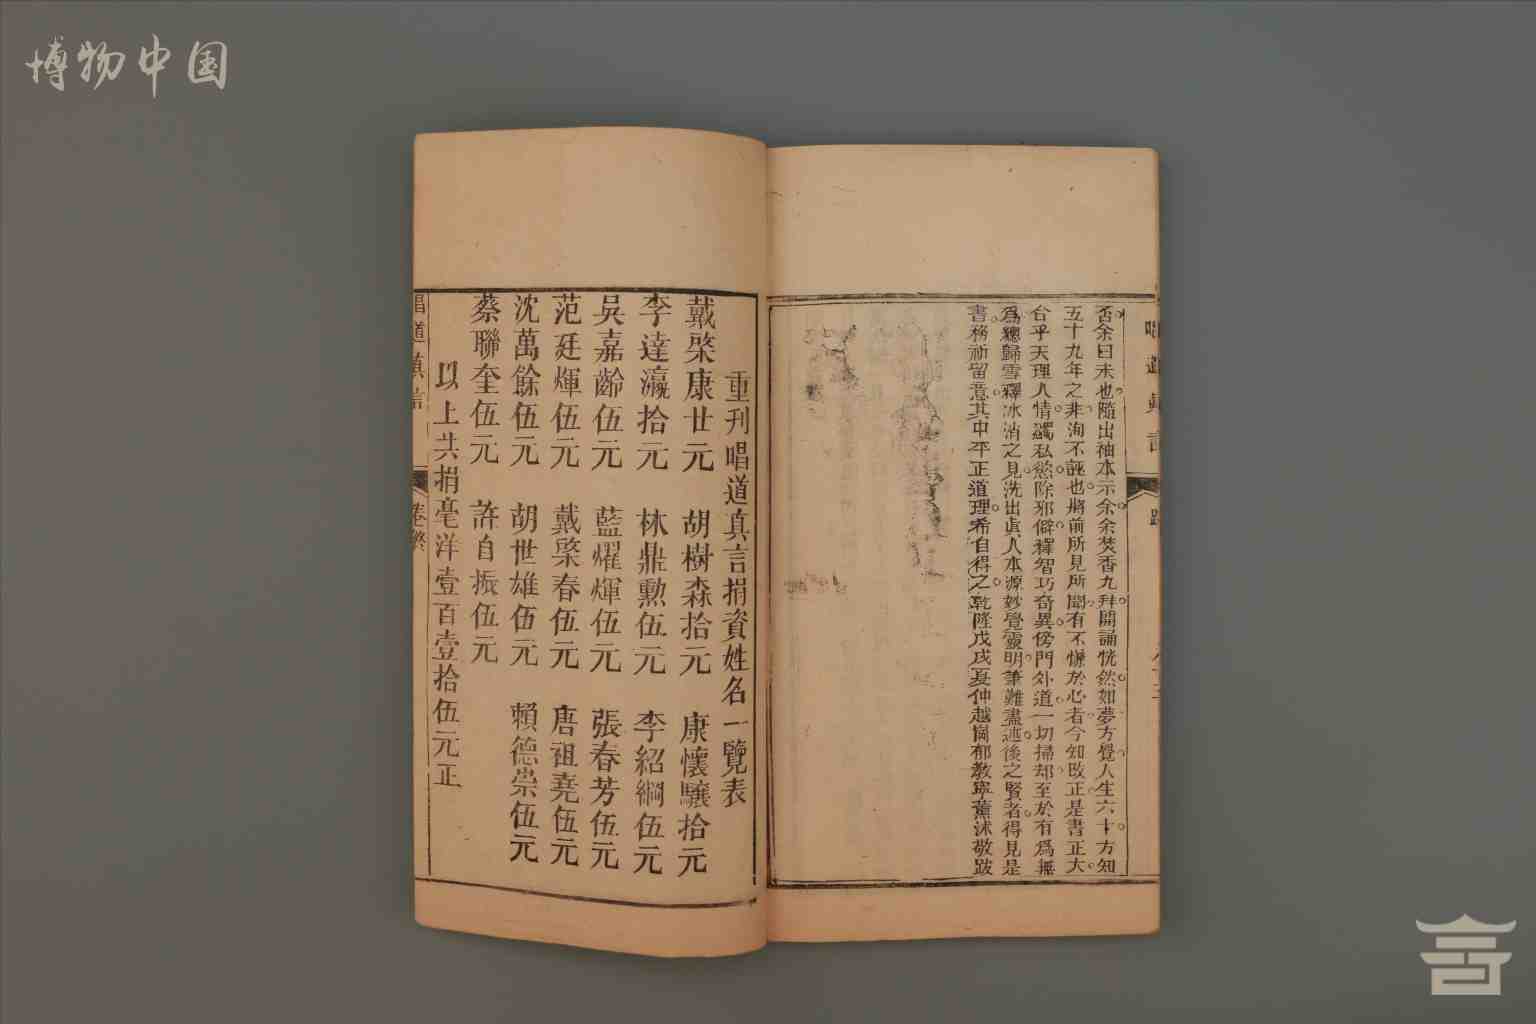 博物中国
否余曰未也隨出袖本示余余焚香九拜開誦恍然如夢方覺人生六十方知
五十九年之非洵不誣也將前所見所聞有不慊於心者今知改正是書正大
台乎天理人情蠲私慾除邪僻釋智巧奇異傍門外道一切掃却至於有爲無
爲總歸雪釋冰消之見洗出眞人本源妙覺靈明筆難盡述後之賢者得見是
書務祈留意其中平正道理希自得之乾隆戊戌夏仲越崗郁教寧薰沭敬跋
重刊唱道真言捐資姓名一覽表
戴棨康廿元 胡樹森拾元 康懷驤拾元
李達瀛拾元 林鼎勳伍元 李紹綱伍元
吳嘉齡伍元 藍燿煇伍元 張春芳伍元
范廷煇伍元 戴棨春伍元 唐祖堯伍元
沈萬餘伍元 胡世雄伍元 賴德崇伍元
蔡聯奎伍元 許自振伍元
以上共捐毫洋壹百壹拾伍元正
唱道真言 卷終